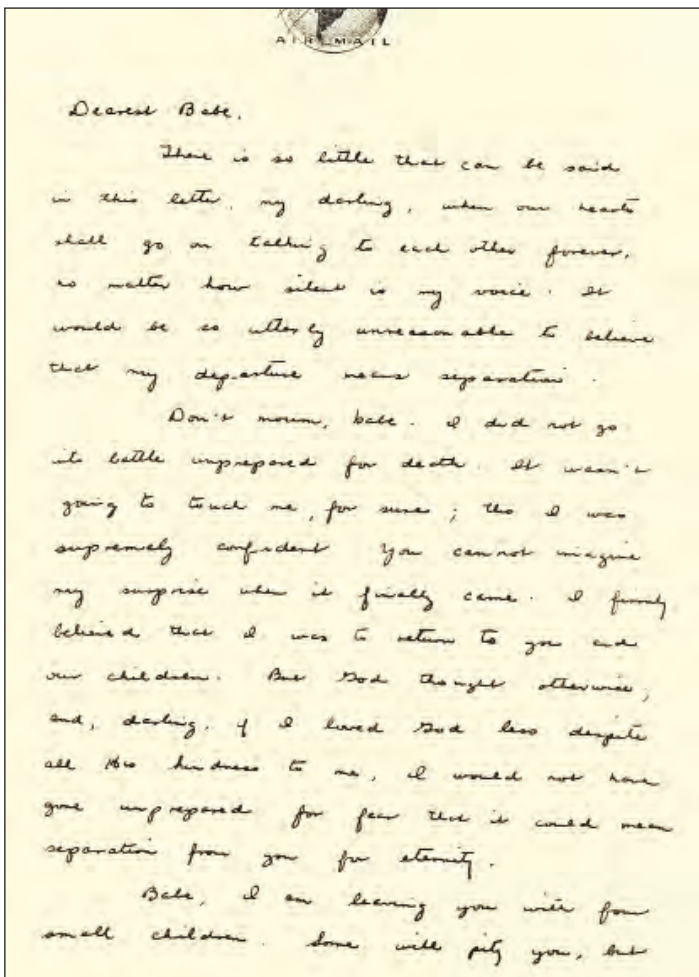 AIR MAIL
Dearest Babe,
There is so little that can be said
in this letter, my darling, when our hearts
shall go on talking to each other forever,
no matter how silent is my voice. It
would be so utterly unreasonable to believe
that my departure means separation.
Don't mourn, babe. I did not go
into battle unprepared for death. It wasn't
going to touch me, for sure; tho I was
supremely confident You cannot imagine
my surprise when it finally came. I firmly
believed that I was to return to you and
our children. But God thought otherwise,
and, darling, if I loved God less despite
all His kindness to me, I would not have
gone unprepared for fear that it could mean
separation from you for eternity.
Babe, I am leaving you with four
small children. Some will pity you, but